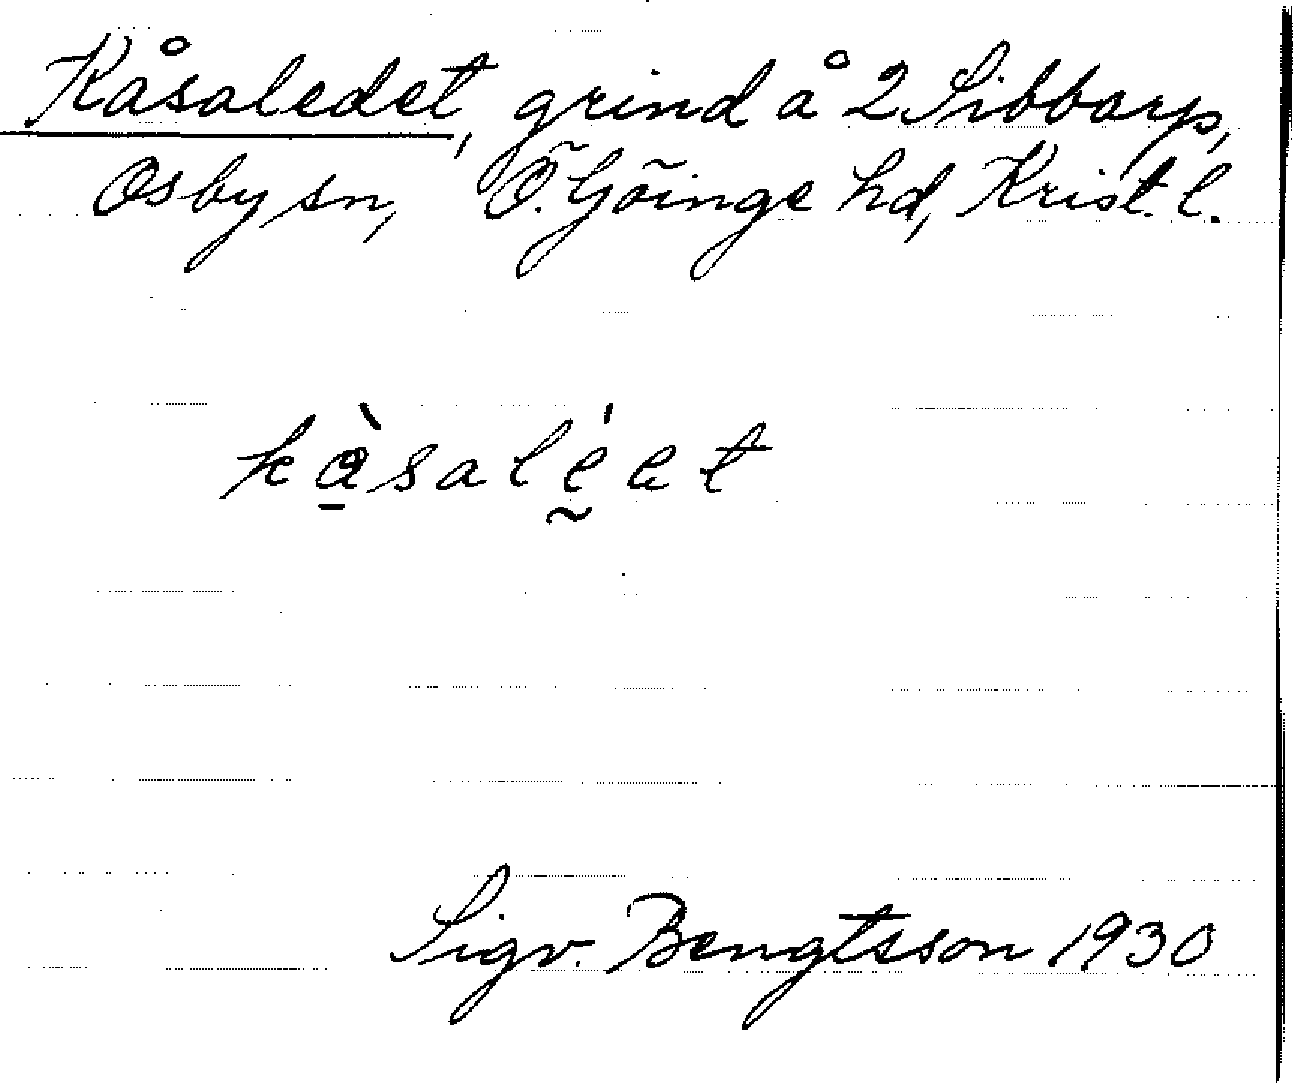 Kåsaledet, grind å 2 Sibbarp,
Osby sn, Ö. Göinge hd, Krist. l.
kàsalḛ́et
Sigv. Bengtsson 1930